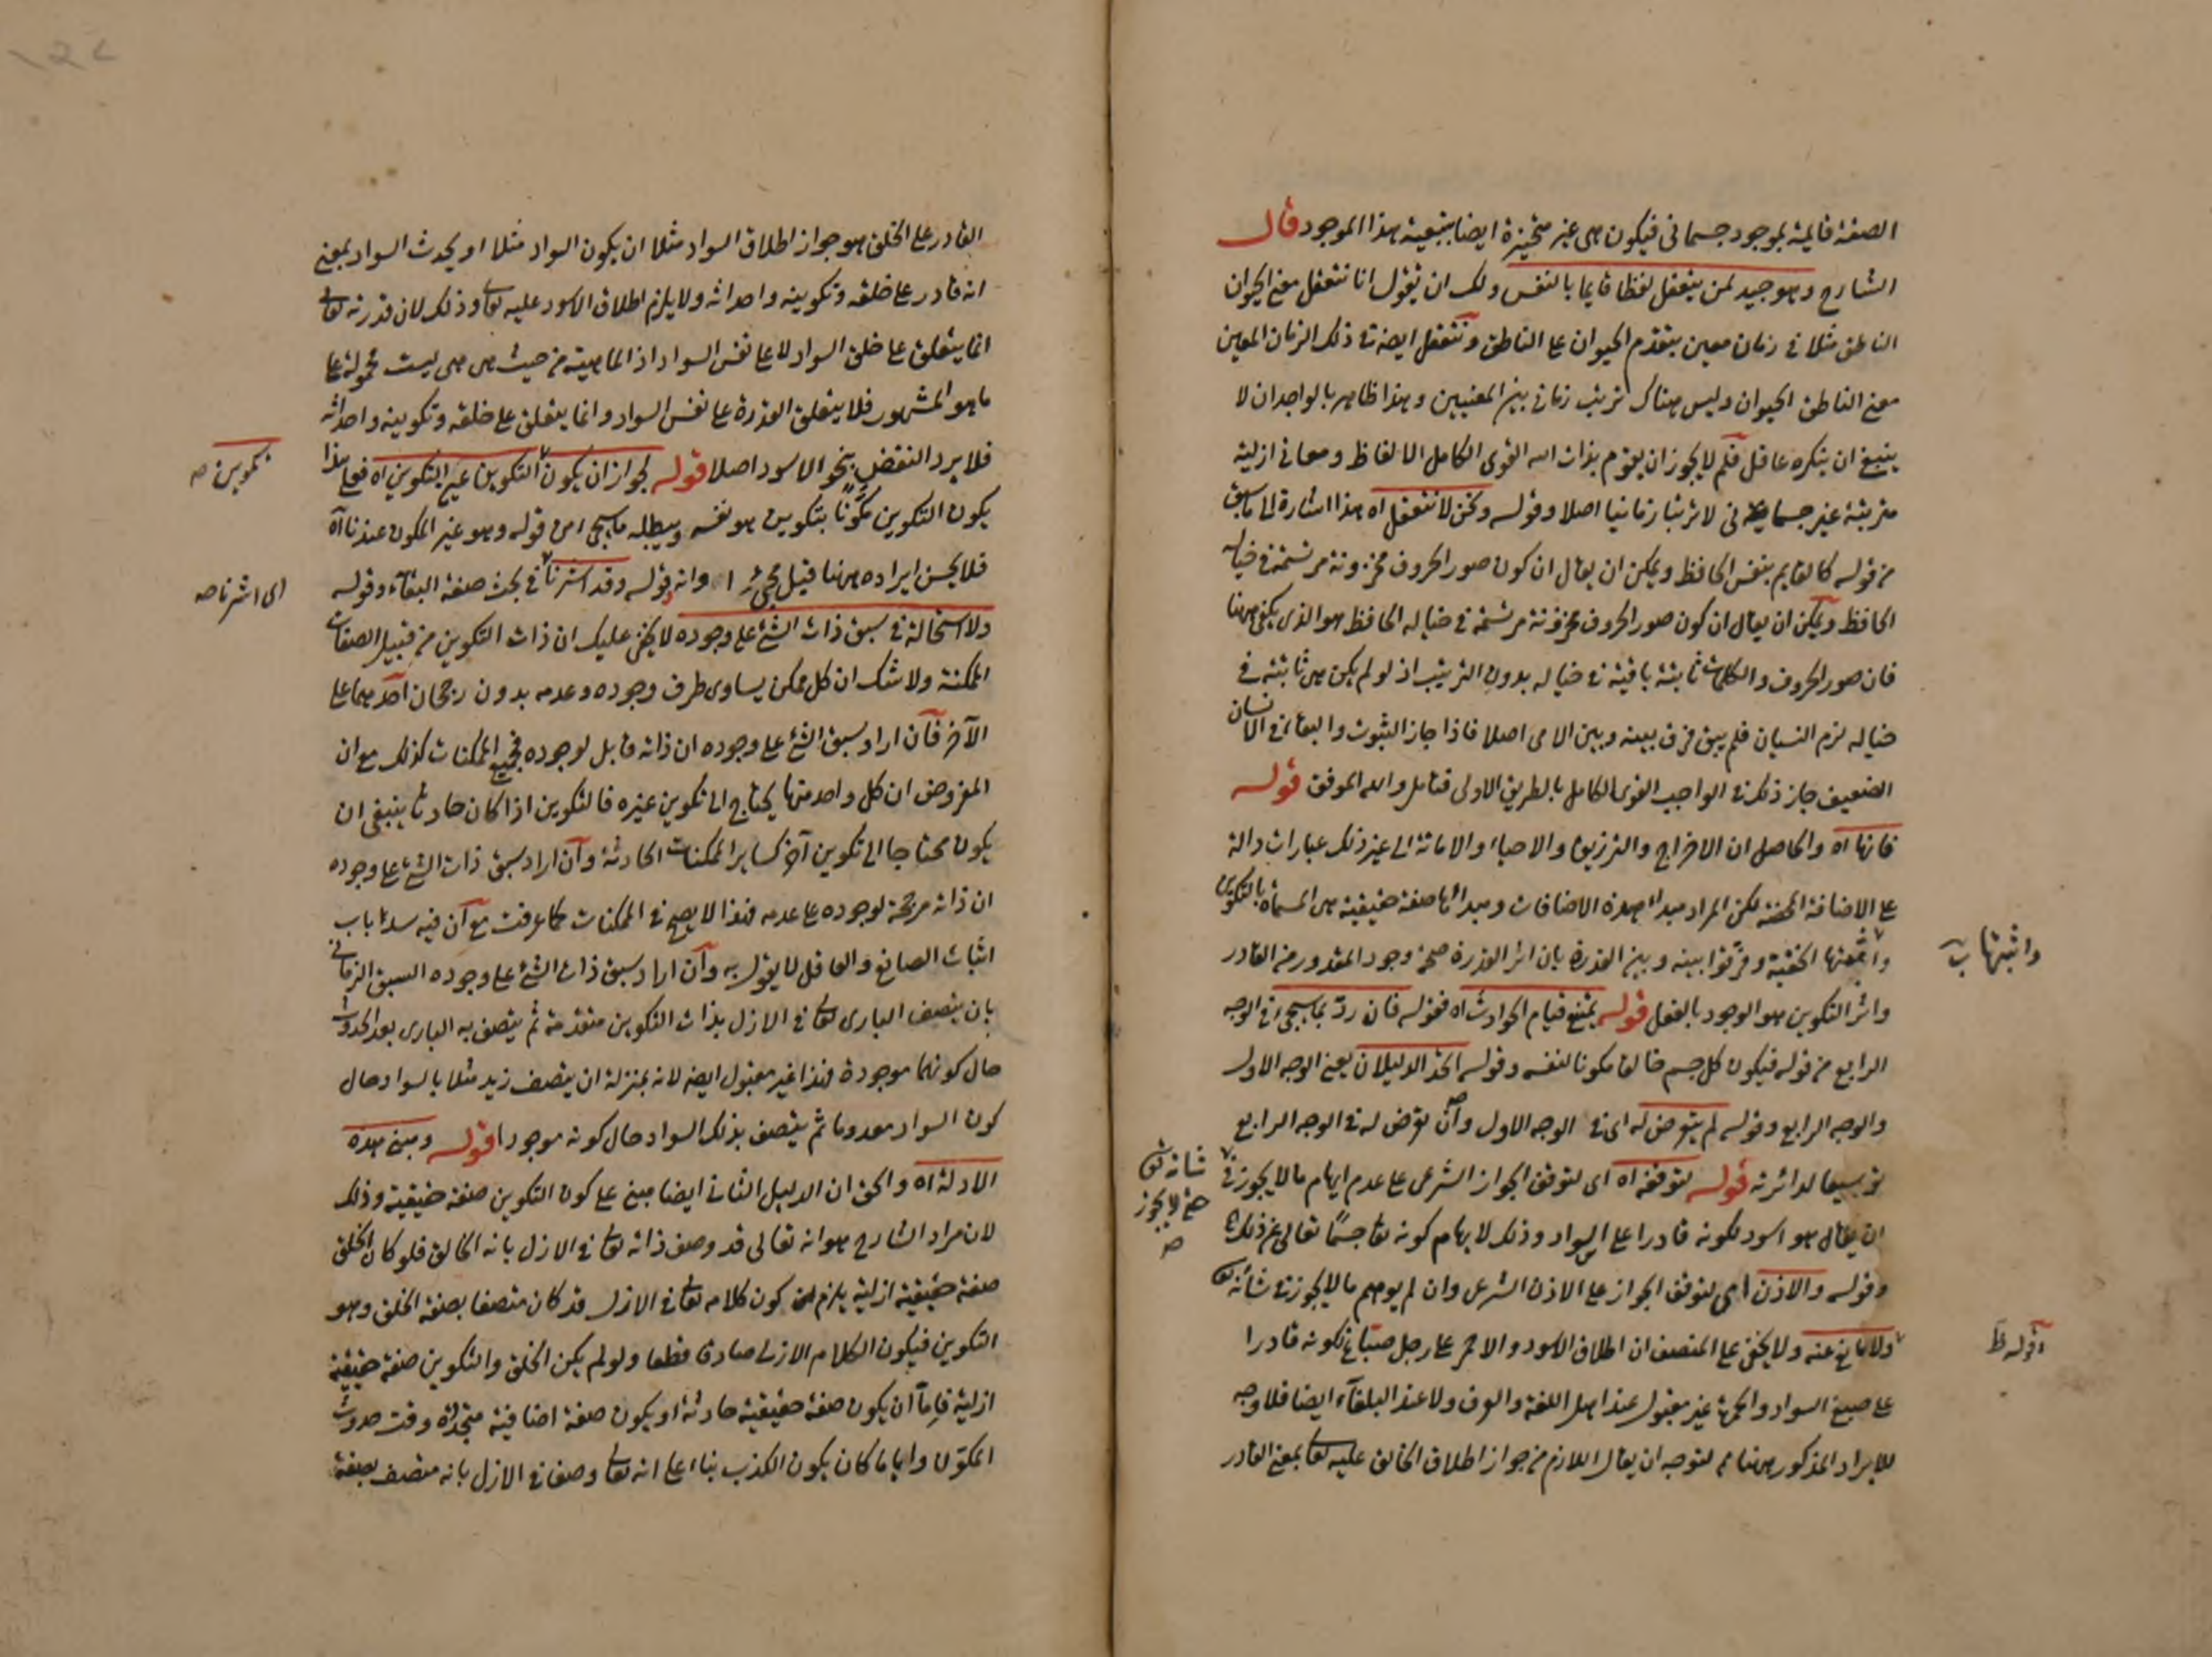 الصفة قايمة بموجود جسمانى فيكون هى غير متحيزة ايضا بتبعية هذا الموجود قال
الشارح وهو جيد لمن يتعقل لفظا قايما بالنفس ولك ان تقول انا نتعقل معنى الحيوان
الناطق مثلا فى زمان معين بتقدم الحيوان على الناطق ونتعقل ايضا فى ذلك الزمان المعين
معنى الناطق الحيوان وليس هناك ترتيب زمانى بين المعنيين وهذا ظاهر بالوجدان لا
ينبغى ان ينكره عاقل فلم لا يجوز ان يقوم بذات الله القوى الكامل الالفاظ ومعانى ازلية
مترتبة غير جسمانى لا ترتبا زمانيا اصلا وقوله ونحن لا نتعقل اه هذا اشارة الى ما سبق
من قوله كالقايم بنفس الحافظ ويمكن ان يقال ان كون صور الحروف مخزونة مرتسمة فى خياله
الحافظ ويمكن ان يقال ان كون صور الحروف مخزونة مرتسمة فى خياله الحافظ هو الذى يكفى ههنا
فان صور الحروف والكلمات ثابتة باقية فى خياله بدون الترتيب اذ لو لم يكن هى ثابتة فى
خياله لزم النسيان فلم يبق فرق بينه وبين الامى اصلا فاذا جاز الثبوت والبقاء فى الانسان
الضعيف جاز ذلك فى الواجب القوى الكامل بالطريق الاولى فتامل والله الموفق قوله
فانها اه والحاصل ان الاخراج والترزيق والاحياء والاماتة الى غير ذلك عبارات دالة
على الاضافة المحضة لكن المراد مبدأ هذه الاضافات ومبدائها صفة حقيقية هى المسماة بالتكوين
واثبتها الحنفية وفرقوا بينه وبين القدرة بان اثر القدرة صحة وجود المقدور من القادر
واثبتها
واثر التكوين هو الوجود بالفعل قوله يمتنع قيام الحوادث اه فقوله فان رد بما سيجىء فى الوجه
الرابع من قوله فيكون كل جسم خالقا مكونا لنفسه وقوله اتحد الدليلان يعنى الوجه الاول
والوجه الرابع وقوله لم يتعرض له اى فى الوجه الاول وان تعرض له فى الوجه الرابع
توسيعا لدائرته قوله لتوقفه اه اى لتوقف الجواز الشرعى على عدم ايهام ما لا يجوز فى
شانه تعالى
حتى لا يجوز
صح
ان يقال هو اسود لكونه قادرا على السواد وذلك لايهام كونه تعا جسمًا تعالى عن ذلك
وقوله والاذن اى لتوقف الجواز على الاذن الشرعى وان لم يوهم ما لا يجوز فى شأنه تعا
ولا مانع عنه ولا يخفى على المنصف ان اطلاق الاسود والاحمر على رجل صباغ لكونه قادرا
على صبغ السواد والحمرة غير مقبول عند اهل اللغة والعرف ولا عند البلغاء ايضا فلا وجه
للايراد المذكور ههنا لتوجه ان يقال اللازم من جواز اطلاق الخالق عليه تعا بمعنى القادر
القادر على الخلق هو جواز اطلاق السواد مثلا ان يكون السواد مثلا او يحدث السواد بمعنى
انه قادر على خلقه وتكوينه واحداثه ولا يلزم اطلاق الاسود عليه تعا وذلك لان قدرته تعا
انما يتعلق على خلق السواد لا على نفس السواد اذ الماهية من حيث هى هى ليست مجعولة على
ما هو المشهور فلا يتعلق القدرة على نفس السواد وانما يتعلق على خلقه وتكوينه واحداثه
فلا يرد النقض بنحو الاسود اصلا قوله لجواز ان يكون التكوين عين التكوين اه فعلى هذا
يكون التكوين مكوَّنًا بتكوين هو نفسه ويبطله ما سيجى من قوله وهو غير المكون عندنا اه
فلا يحسن ايراده ههنا قبل مجئ وانه قوله وقد اشرنا فى بحث صفة البقاء وقوله
اى اشرنا صح
ولا استحالة فى سبق ذات الشئ على وجوده لا يخفى عليك ان ذات التكوين من قبيل الصفات
الممكنة ولا شك ان كل ممكن يساوى طرف وجوده وعدمه بدون رجحان احدهما على
الآخر فان اراد سبق الشئ على وجوده ان ذاته قابل لوجوده فجميع الممكنات كذلك مع ان
المفروض ان كل واحد منها يحتاج الى تكوين غيره فالتكوين اذا كان حادثا ينبغى ان
يكون محتاجا الى تكوين آخر كساير الممكنات الحادثة وان اراد سبق ذات الشئ على وجوده
ان ذاته مرجحة لوجوده على عدمه فهذا لا يصح فى الممكنات كما عرفت مع ان فيه سد باب
اثبات الصانع والعاقل لا يقول به وان اراد سبق ذات الشئ على وجوده السبق الزمانى
بان يتصف البارى تعا فى الازل بذات التكوين متقدمة ثم يتصف به البارى بعد الحدوث
حال كونها موجودة فهذا غير مقبول ايضا لانه بمنزلة ان يتصف زيد مثلا بالسواد حال
كون السواد معدوما ثم يتصف بذلك السواد حال كونه موجودا قوله ومبنى هذه
الادلة اه والحق ان الدليل الثانى ايضا مبنى على كون التكوين صفة حقيقية وذلك
لان مراد الشارح هو انه تعالى قد وصف ذاته تعا فى الازل بانه الخالق فلو كان الخلق
صفة حقيقية ازلية يلزم كون كلامه تعا فى الازل قد كان متصفا بصفة الخلق وهو
التكوين فيكون الكلام الازلى صادقا قطعا ولو لم يكن الخلق والتكوين صفة حقيقية
ازلية فاما ان يكون صفة حقيقية حادثة او يكون صفة اضافية متجددة وقت حدوث
المكون وايا ما كان يكون الكذب بناء على انه تعا وصف فى الازل بانه متصف بصفة